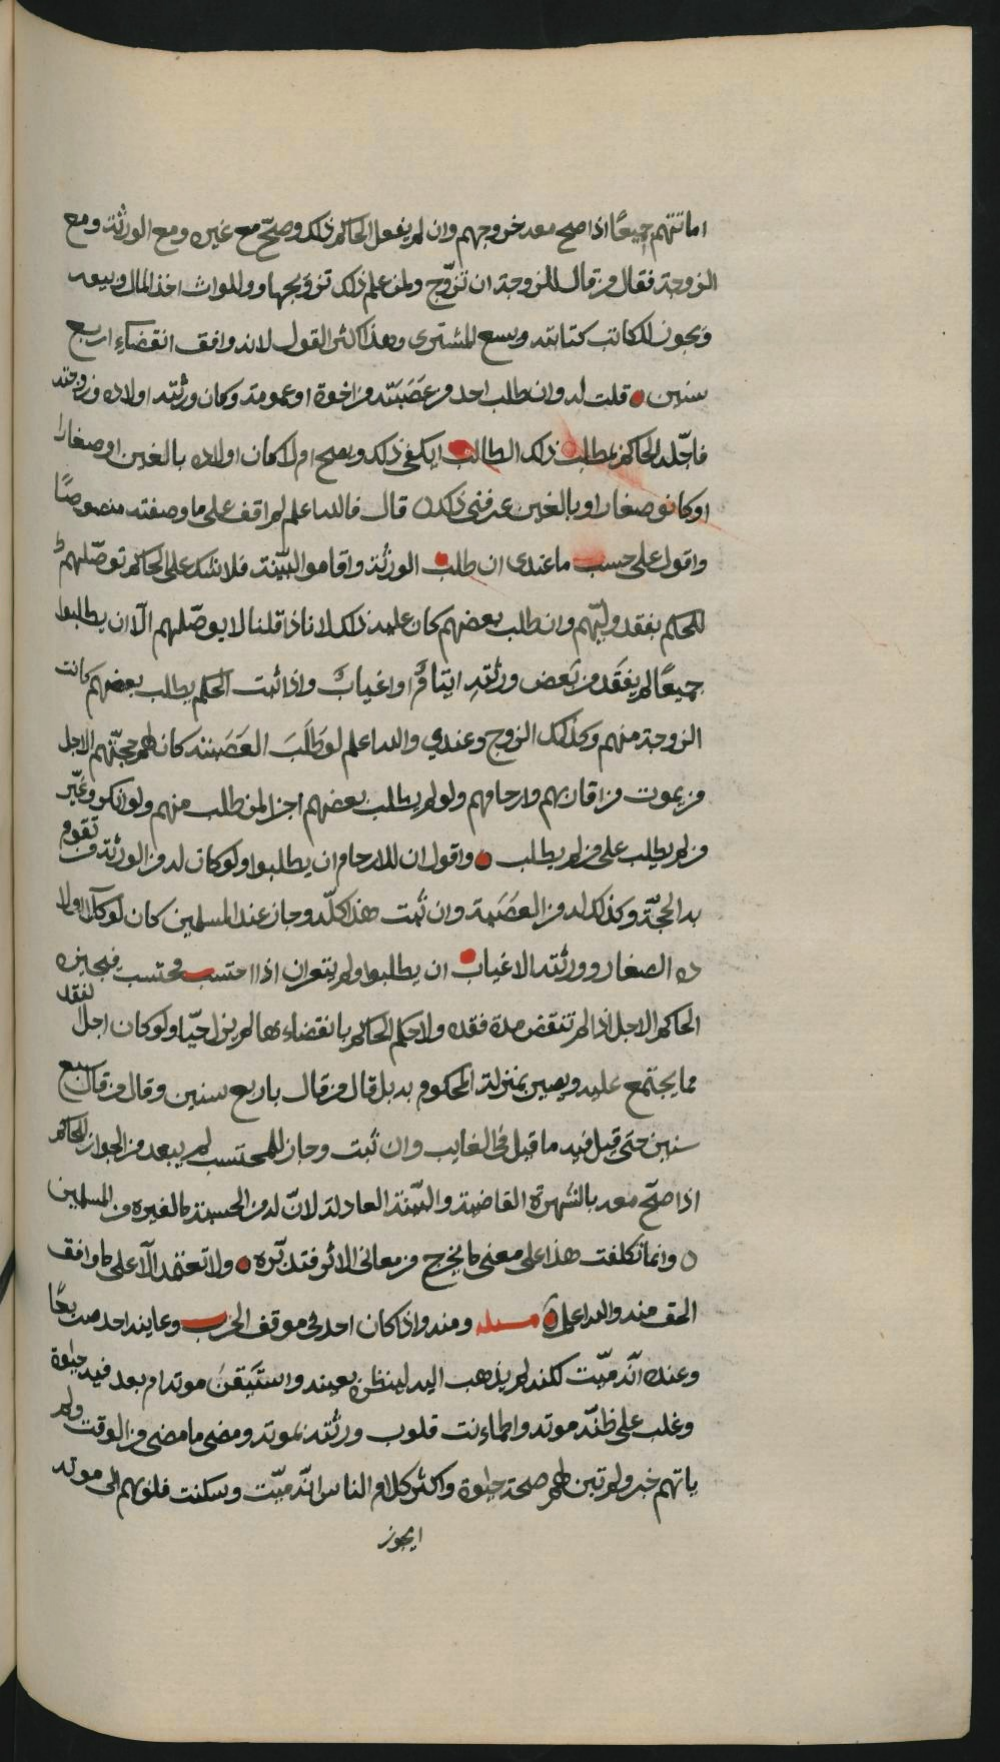 اماتتهم جميعًا اذا صح معه خروجهم وان لم يفعل الحاكم ذلك وصحّ مع غيره ومع الورثة ومع
الزوجة فقال من قال للزوجة ان تزوّج ولمن علم ذلك تزويجها وللوارث اخذ المال وبيعه
ويجوز للكاتب كتابته ويسع المشتري وهذا اكثر القول لانه وافق انقضاء اربع
سنين قلت له وان طلب احد من عَصَبَته من اخوة او عمومة وكان ورثته اولاده وزوجته
فاجّله الحاكم بمطلب ذلك الطالب ايكفي ذلك ويصح ام لا كان اولاده بالغين او صغارا
او كانوا صغارا وبالغين عرفني ذلك قال فالله اعلم لم اقف على ما وصفته منصوصًا
واقول على حسب ما عندي ان طلب الورثة واقاموا البيّنة فلا شك على الحاكم توصّلهم
للحكم بفقد وليّهم وان طلب بعضهم كان عليه ذلك لانا اذا قلنا لا يوصّلهم الّا ان يطلبوا
جميعًا لم يفقد من بعض ورثته ايتامًا او اغيابًا واذا ثبت الحكم بطلب بعضهم كانت
الزوجة منهم وكذلك الزوج وعندي والله اعلم لو طَلَبَ العَصَبَة كان لهم حجّتهم الاجل
من يموت من اقاربهم وارحامهم ولو لم يطلب بعضهم اجزا لمن طلب منهم ولو انكر وغيّر
من لم يطلب على من لم يطلب واقول ان للارحام ان يطلبوا ولو كان له من الورثة من تقوم
به الحجّة وكذلك له من العَصَبة وان ثبت هذا كلّه وجاز عند المسلمين كان لوكلاء اولا
ده الصغار وورثته الاغياب ان يطلبوا ولم يتعر ان اذا احتسب محتسب فيجيزه
الحاكم الاجل اذا لم تنقض مدة فقده ولا حكم الحاكم بانقضاءها لم يزل حيّا ولو كان اجل لفقد
مما يجتمع عليه ويصير بمنزلة المحكوم به بل قال من قال باربع سنين وقال من قال سبع
سنين حتى قيل فيه ما قيل في الغايب وان ثبت وجاز للمحتسب لم يبعد من الجواز للحاكم
اذا صحّ معه بالشهرة القاضية والبيّنة العادلة لانّ له من الحسبة ما لغيره من المسلمين
وانما تكلفت هذا على معنى ما يخرج من معاني الاثر فتدبّره ولا تعتمد الّا على ما وافق
الحق منه والله اعلم مسئلة ومنه واذا كان احد في موقف الحرب وعاينه احد صريعًا
وعنده انّه ميّت لكنه لم يذهب اليه لينظره بعينه واستيقن موته ام بعد فيه حيٰوة
وغلب على ظنّه موته واطماءنت قلوب ورثته بموته ومضى ما مضى من الوقت ولم
ياتهم خبر ولم تبن لهم صحة حيٰوة واكثر كلام الناس انّه ميّت وسكنت قلوبهم الى موته
ايجوز